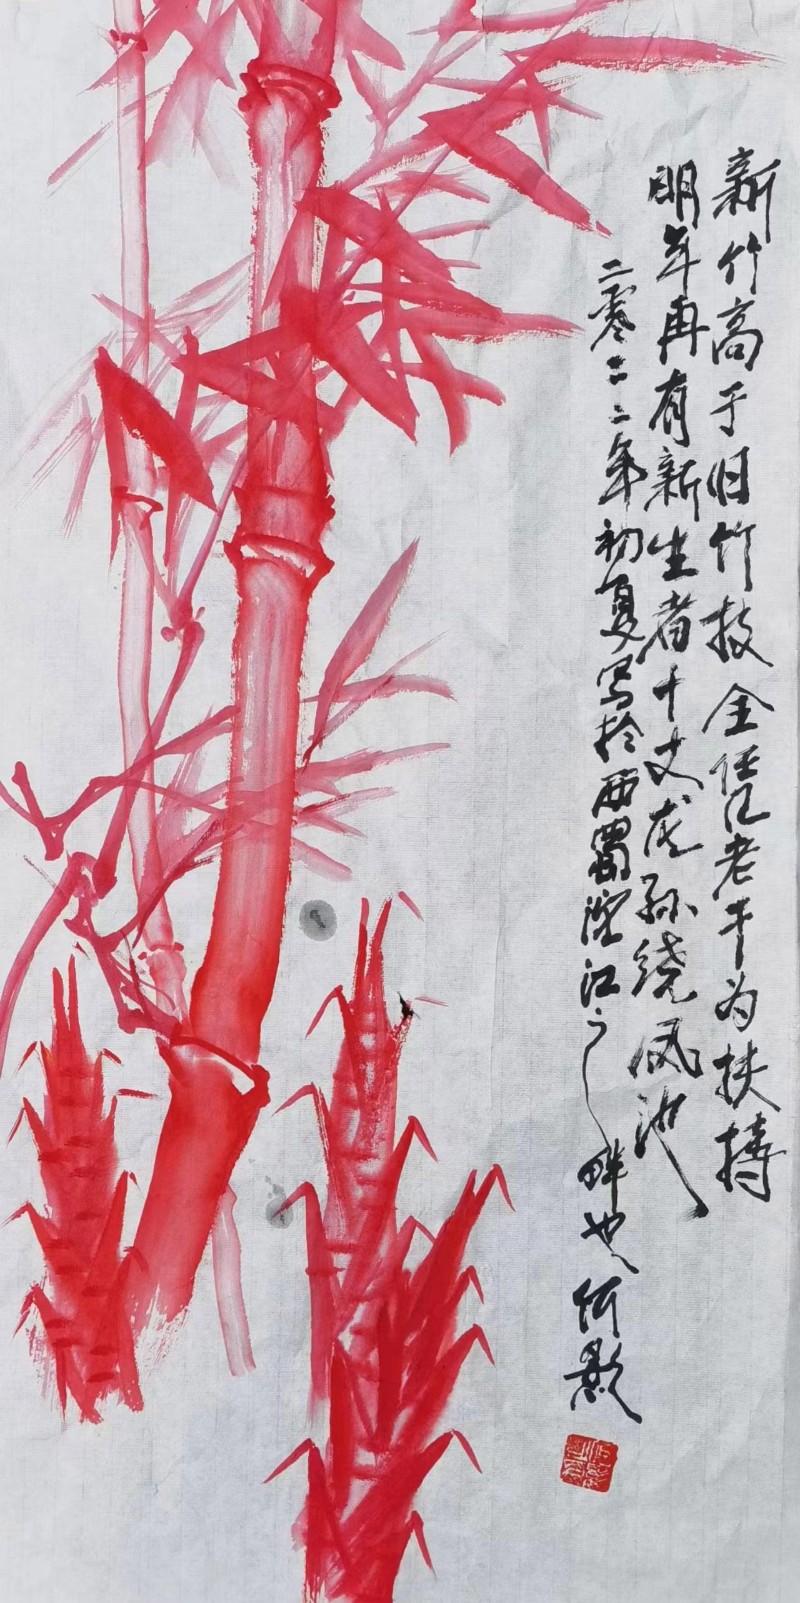 新竹高于旧竹枝全凭老干为扶持
明年再有新生者十丈龙孙绕凤池
二零二二年初夏写於西蜀涪江之畔也何影